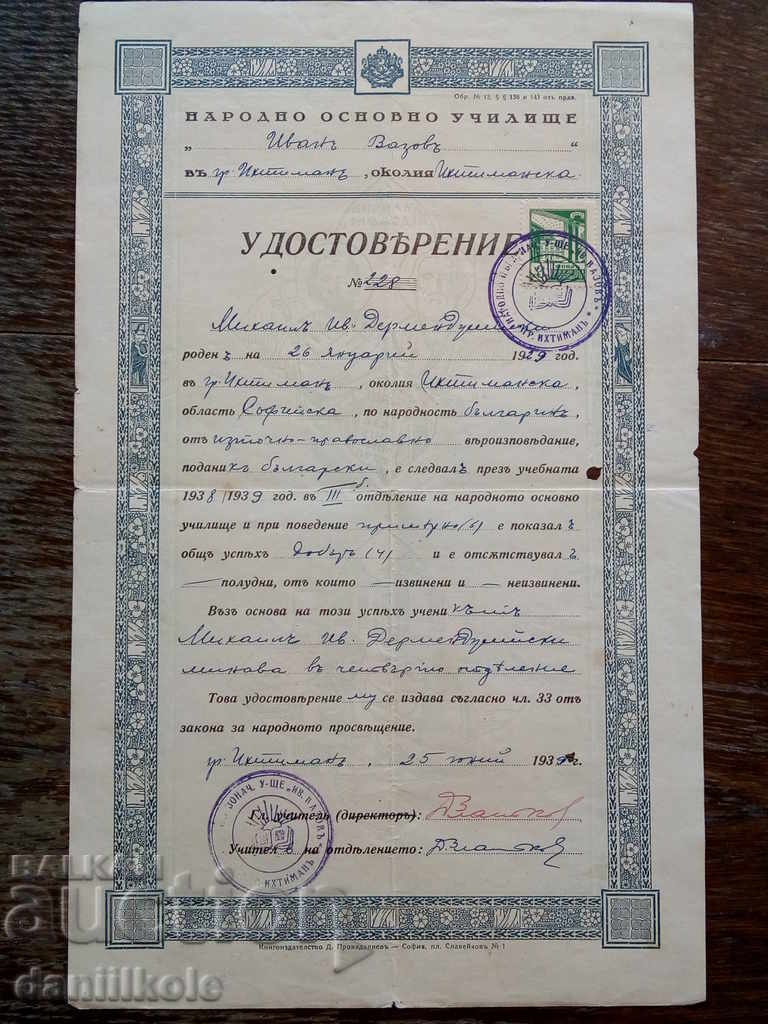 Обр. № 12, § § 136 и 141 отъ прав.
НАРОДНО ОСНОВНО УЧИЛИЩЕ
„ Иванъ Вазовъ “
въ гр. Ихтиманъ, околия Ихтиманска
УДОСТОВѢРЕНИЕ
№ 228
НАРОДНО ОСН. НАЧ. У-ЩЕ „ИВ. ВАЗОВЪ“ * ГР. ИХТИМАНЪ *
Михаилъ Ив. Дермендужийски
роденъ на 26 януарий 1929 год.
въ гр. Ихтиманъ, околия Ихтиманска,
область Софийска, по народность българинъ,
отъ източно-православно вѣроизповѣдание,
поданикъ български, е следвалъ презъ учебната
1938/1939 год. въ III б. отдѣление на народното основно
училище и при поведение примѣрно (6) е показалъ
общъ успѣхъ добъръ (4) и е отсѫтствувалъ
— полудни, отъ които — извинени и — неизвинени.
Възъ основа на този успѣхъ ученикътъ
Михаилъ Ив. Дермендужийски
минава въ четвърто отдѣление
Това удостовѣрение му се издава съгласно чл. 33 отъ
закона за народното просвѣщение.
гр. Ихтиманъ, 25 юний 1939 г.
НАЧ. У-ЩЕ „ИВ. ВАЗОВЪ“ * ИХТИМАНЪ *
Гл. учитель (директоръ): Д. Златков
Учителъ на отдѣлението: Д. Златков
Книгоиздателство Д. Провадалиевъ — София, пл. Славейковъ № 1
BALKAN
auction
daniilkole